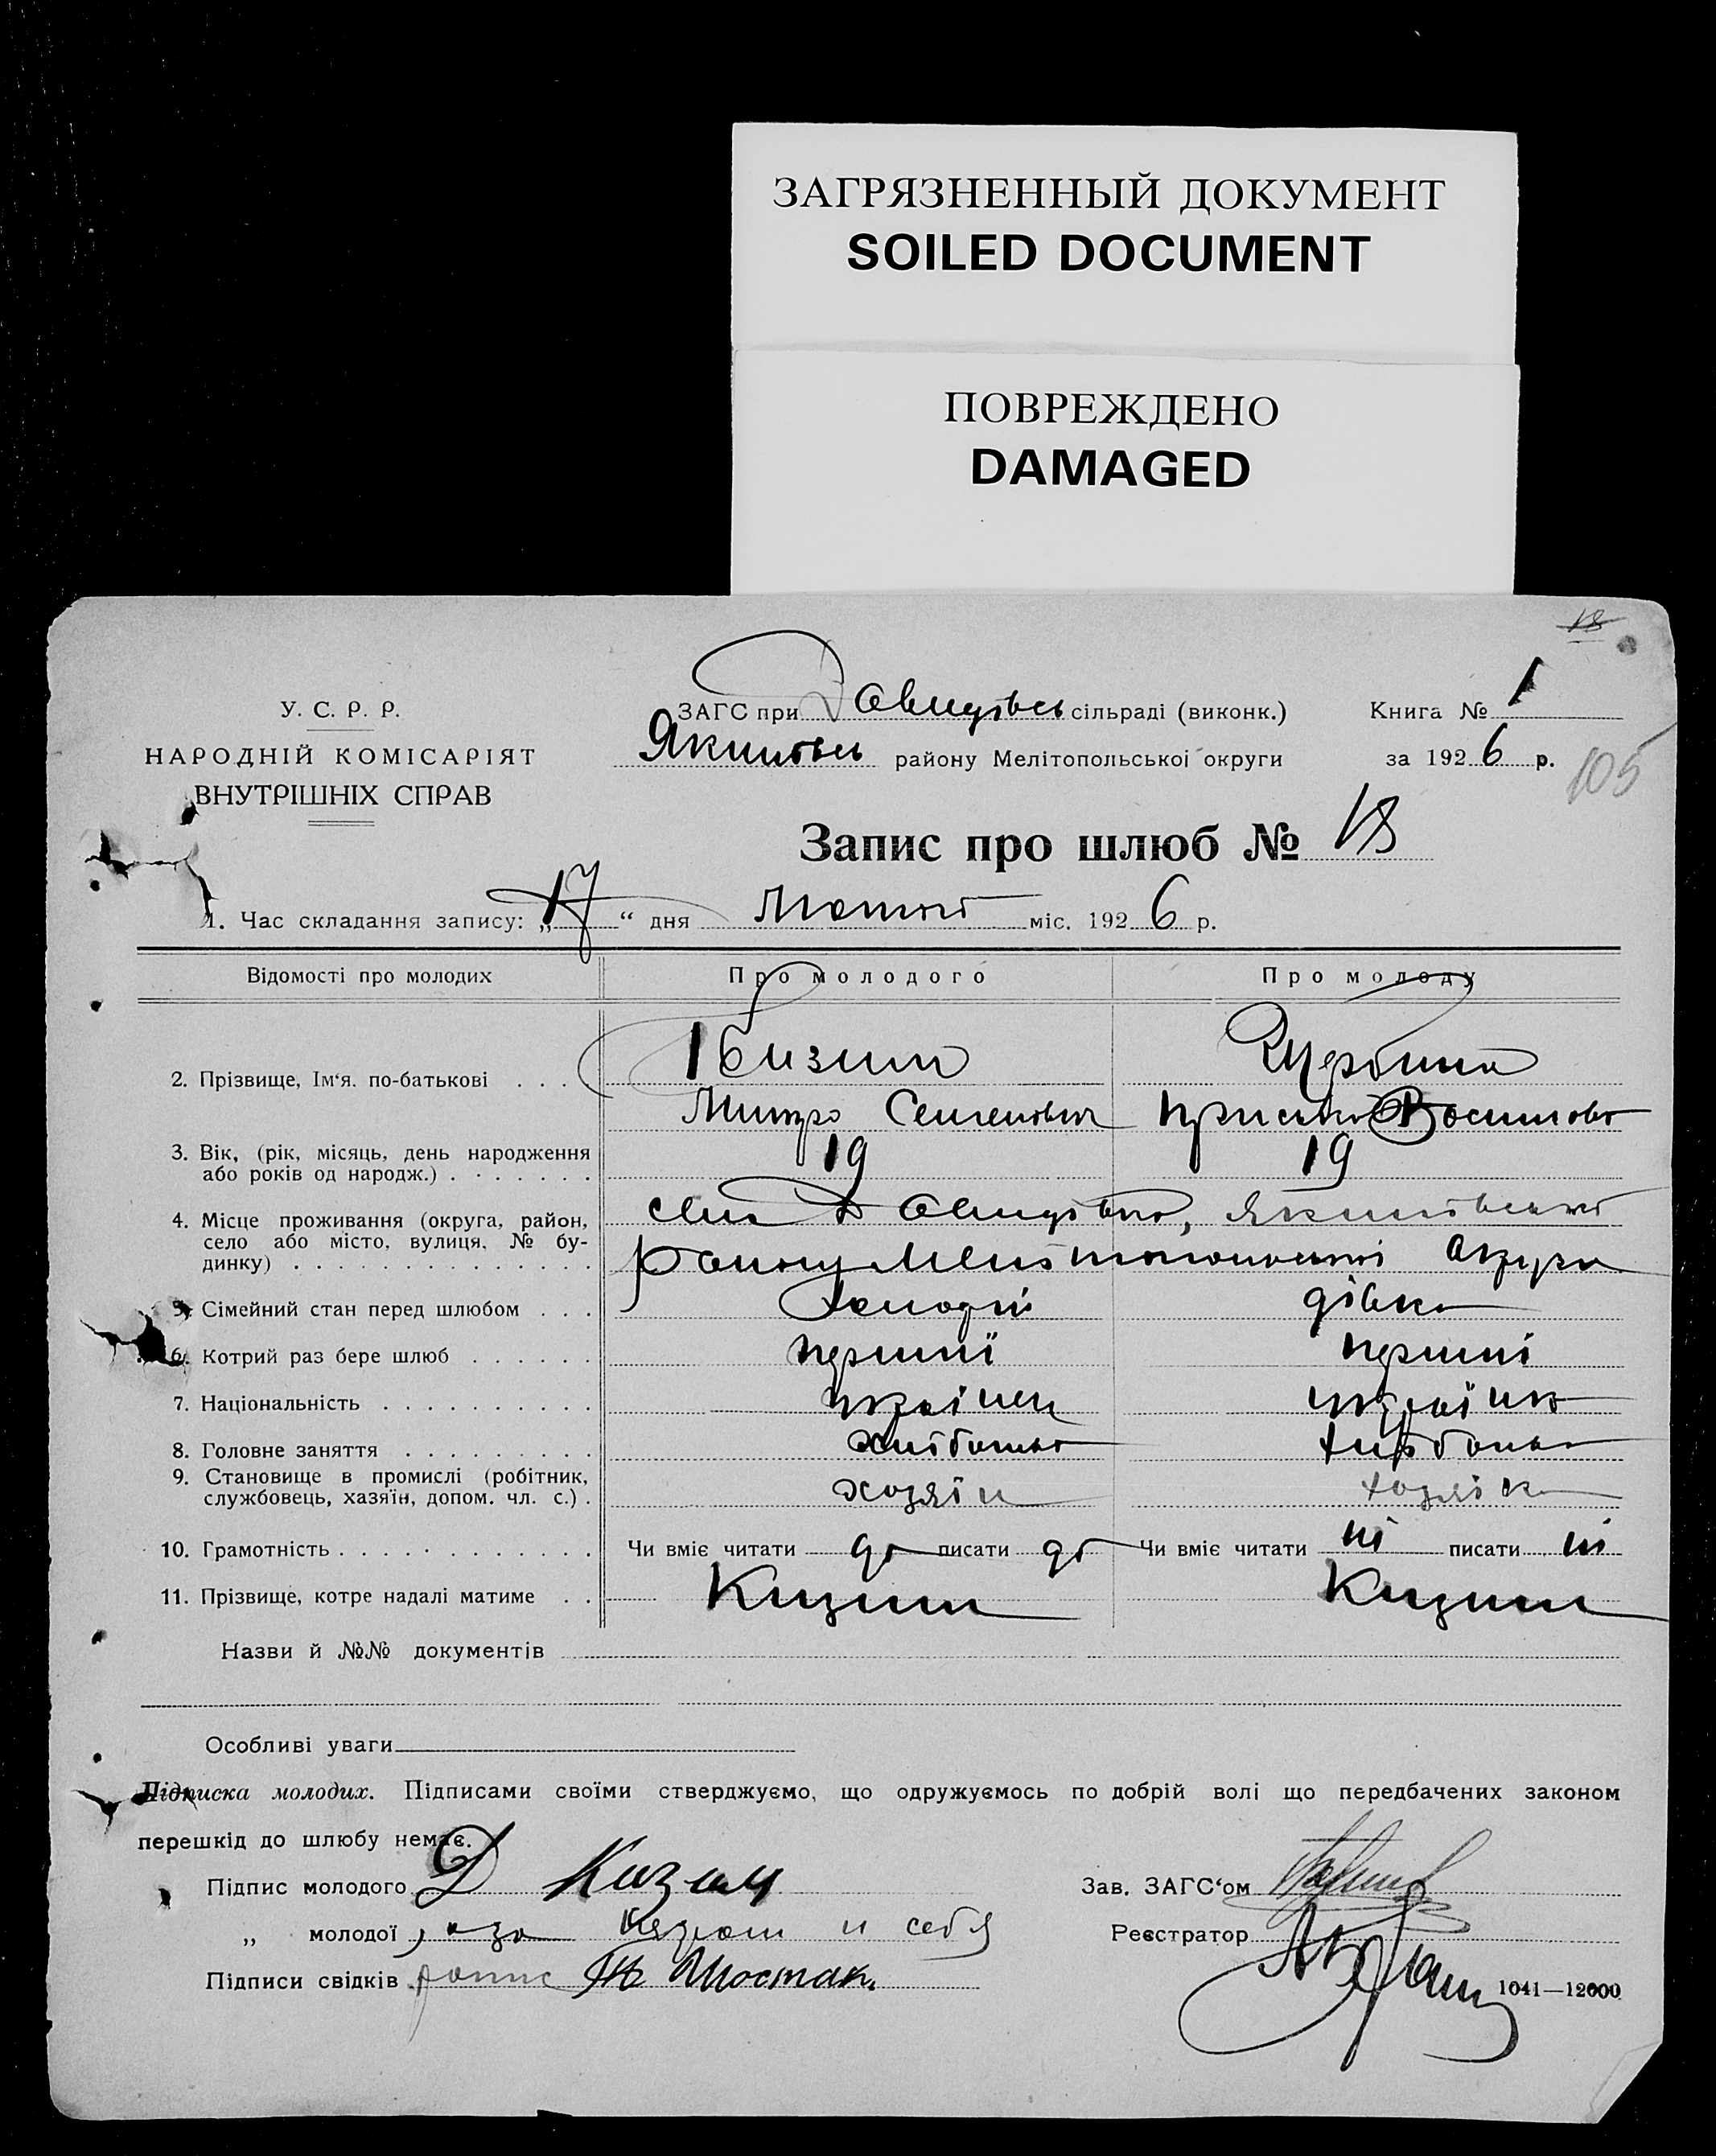 ЗАГРЯЗНЕННЫЙ ДОКУМЕНТ
SOILED DOCUMENT
ПОВРЕЖДЕНО
DAMAGED
18
У. С. Р. Р.
НАРОДНІЙ КОМІСАРІЯТ
ВНУТРІШНІХ СПРАВ
ЗАГС при Давидівсь сільраді (виконк.)
Якимівсь району Мелітопольської округи
Книга № 1
за 1926 р.
105
Запис про шлюб № 18
1. Час складання запису: „17“ дня Лютого міс. 1926 р.
Відомості про молодих Про молодого Про молоду
2. Прізвище, Ім‘я. по-батькові . . . Кизим Щербина
Митро Семенович Василова
3. Вік, (рік, місяць, день народження
або років од народж.) . . . . . . . 19 19
4. Місце проживання (округа, район,
село або місто, вулиця, № бу-
динку) . . . . . . . . . . . . . .
село Давидівка, Якимівського
району Мелітопольської Округи
5. Сімейний стан перед шлюбом . . . холодий дівка
6. Котрий раз бере шлюб . . . . . . перший перший
7. Національність . . . . . . . . . . українец українка
8. Головне заняття . . . . . . . . .
9. Становище в промислі (робітник,
службовець, хазяїн, допом. чл. с.) . хозяїн хозяїка
10. Грамотність . . . . . . . . . . . . Чи вміє читати да писати да Чи вміє читати ні писати ні
11. Прізвище, котре надалі матиме . . Кизим Кизим
Назви й №№ документів
Особливі уваги
Підписка молодих. Підписами своїми стверджуємо, що одружуємось по добрій волі що передбачених законом
перешкід до шлюбу немає.
Підпис молодого Д Казим
„ молодої, аза Кязюм и себя
Підписи свідків Шостак.
Зав. ЗАГС‘ом
Реєстратор
1041—12000